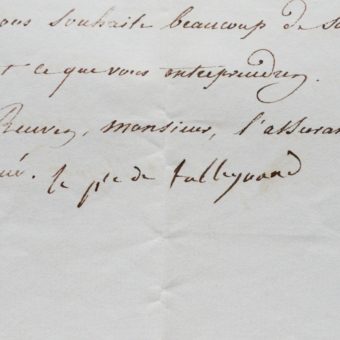 ous souhaite beaucoup de s
t ce que vous entreprendrez.
Recevez, monsieur, l'assuran
le p^ce de talleyrand